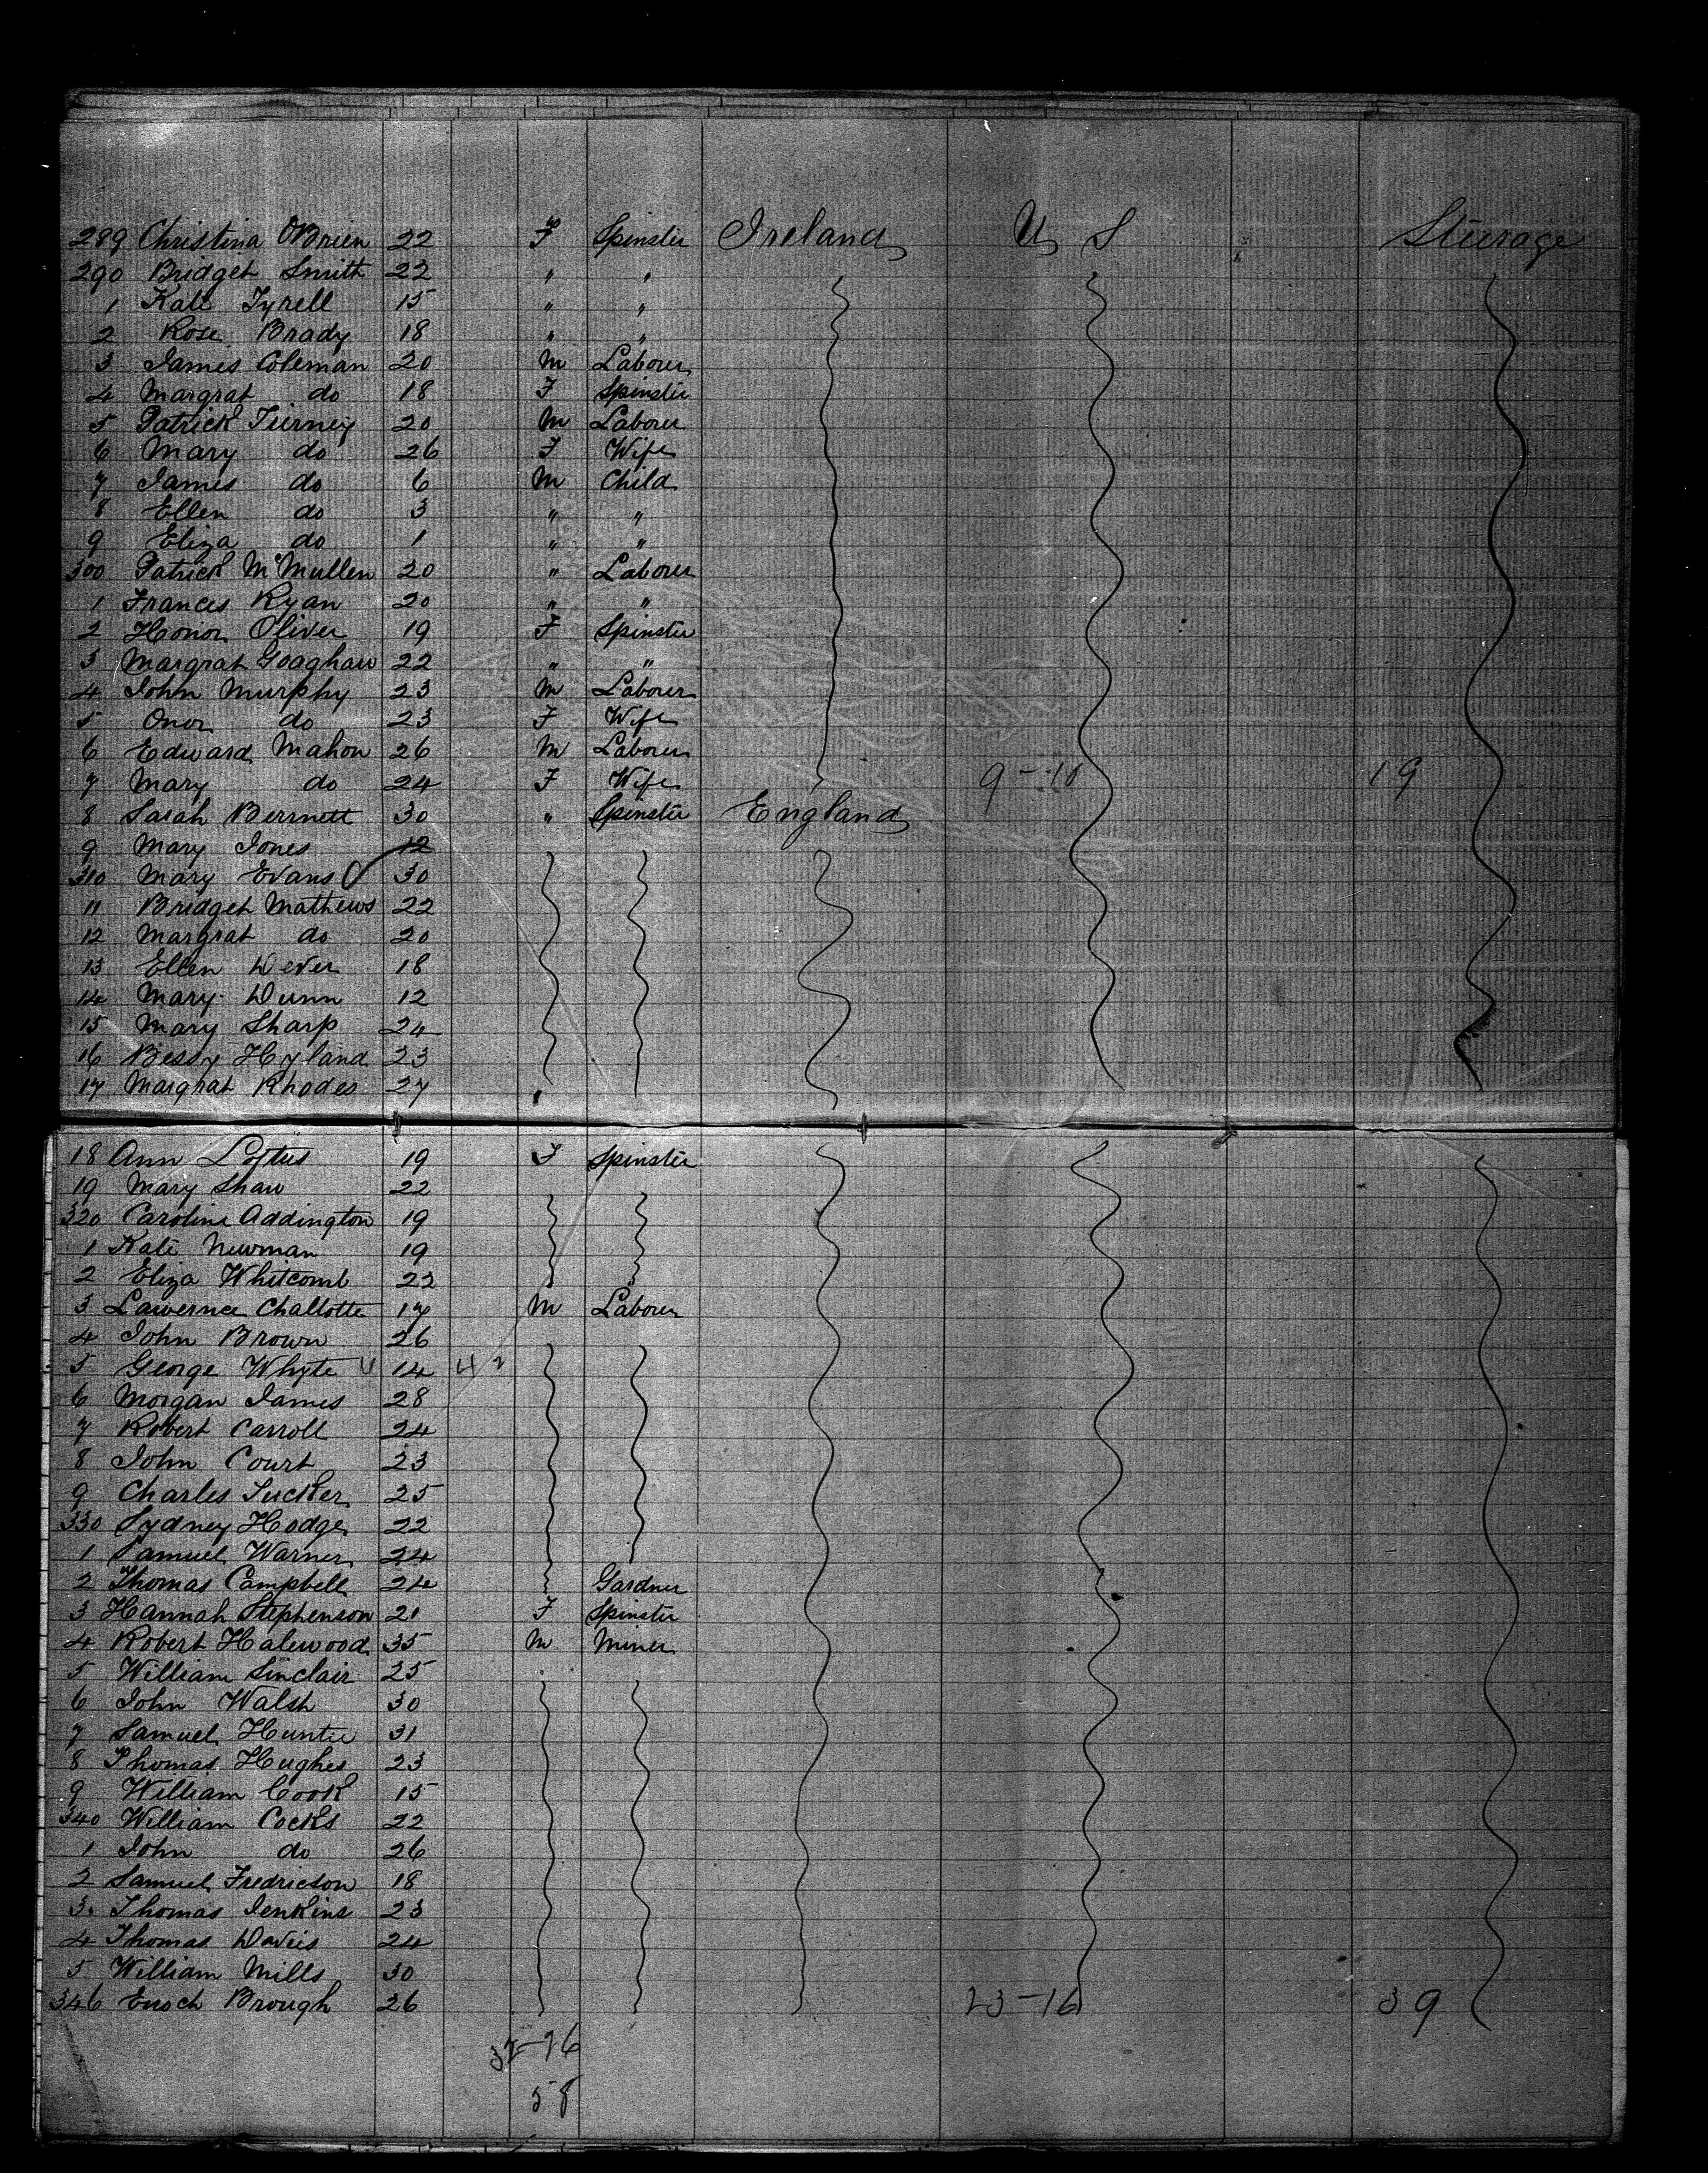 289 Christina OBrien 22 F Spinster Ireland U S Steerage
290 Bridget Smith 22 " "
1 Kate Tyrell 15 " "
2 Rose Brady 18 " "
3 James Coleman 20 M Laborer
4 Margrat do 18 F Spinster
5 Patrick Tierney 20 M Laborer
6 Mary do 26 F Wife
7 James do 6 M Child
8 Ellen do 3 " "
9 Eliza do 1 " "
300 Patrick McMullen 20 " Laborer
1 Frances Ryan 20 " "
2 Honor Oliver 19 F Spinster
3 Margrat 22 " "
4 John Murphy 23 M Laborer
5 Onor do 23 F Wife
6 Edward Mahon 26 M Laborer
7 Mary do 24 F Wife 9-10 19
8 Sarah 30 " Spinster England
9 Mary Jones 12
310 Mary Evans 30
11 Bridget Mathews 22
12 Margrat do 20
13 Ellen Dever 18
14 Mary Dunn 12
15 Mary Sharp 24
16 Bessy Hyland 23
17 Margrat Rhodes 27
18 Ann Loftus 19 F Spinster
19 Mary Shaw 22
320 Caroline Addington 19
1 Kate Newman 19
2 Eliza Whitcomb 22
3 Lawernce Challotte 17 M Laborer
4 John Brown 26
5 George Whyte 14
6 Morgan James 28
7 Robert Carroll 24
8 John Court 23
9 Charles Tucker 25
330 Sydney Hodge 22
1 Samuel Warner 24
2 Thomas Campbell 24 Gardner
3 Hannah Stephenson 21 F Spinster
4 Robert Halewood 35 M Miner
5 William Sinclair 25
6 John Walsh 30
7 Samuel Hunter 31
8 Thomas Hughes 23
9 William Cook 15
340 William Cocks 22
1 John do 26
2 Samuel Fredricson 18
3 Thomas Jenkins 23
4 Thomas Davies 24
5 William Mills 30
346 Enoch Brough 26 23-16 39
32-26
58